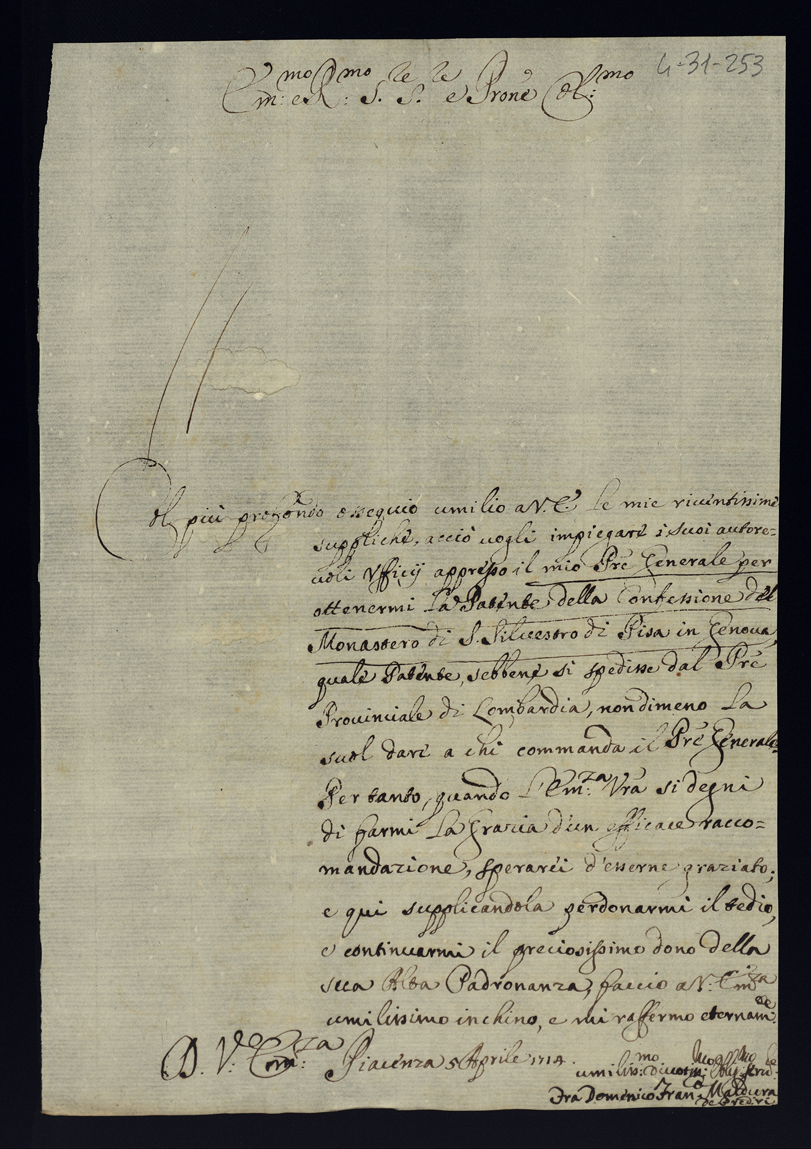 4-31-253
Em:mo e R:mo S.re S.re e Prone Col:mo
Col più profondo ossequio umilio a V. E. le mie riventissime
suppliche, acciò vogli impiegare i suoi autore=
voli Ufficij appresso il mio Pre Generale per
ottenermi la Patente della Confessione del
Monastero di S. Silvestro di Pisa in Genova,
quale Patente, sebbene si spedisse dal Pre
Provinciale di Lombardia, nondimeno la
suol dare a chi commanda il Pre Generale.
Per tanto, quando l'Em:za Vra si degni
di farmi la grazia d'un efficace racco=
mandazione, sperarei d'esserne graziato;
e qui supplicandola perdonarmi il tedio,
e continuarmi il preciosissimo dono della
sua Alta Padronanza, faccio a V: Em:za
umilissimo inchino, e mi raffermo eternam:te
D. V: Em:za Piacenza 5 Aprile 1714.
umiliss:mo
Fra Domenico Fran:co Maldura
de Pred:ri